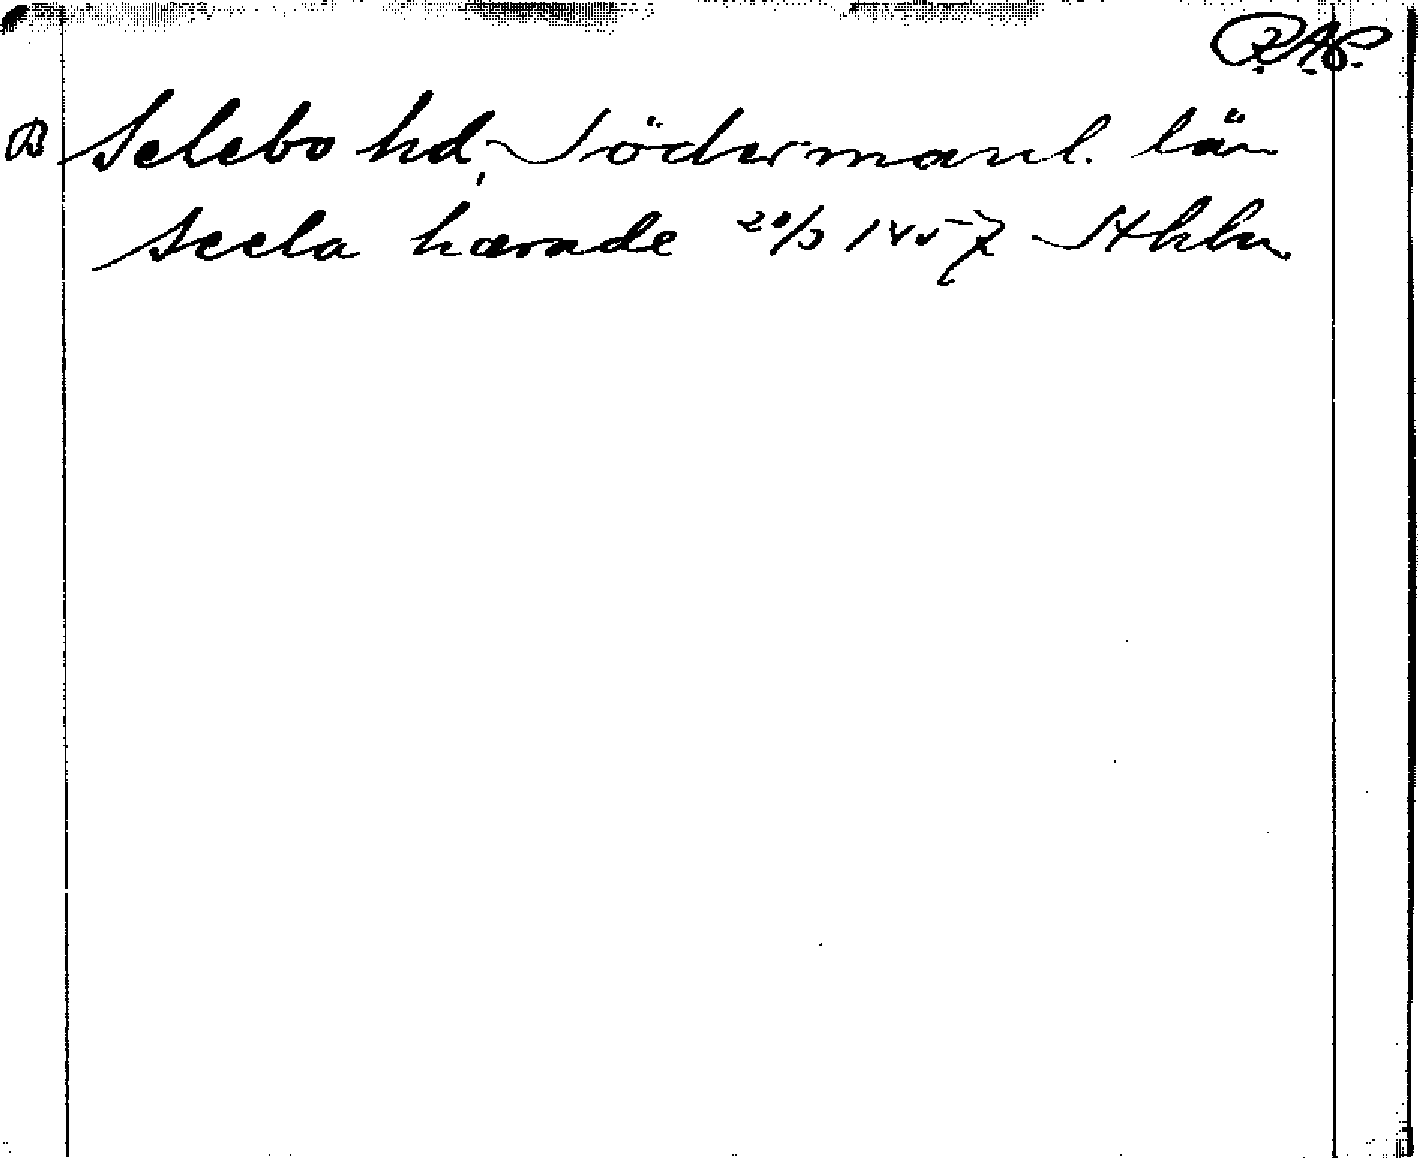 R.A.P.
B Selebo hd, Södermanl. län
Seela hærade 20/3 1457 Sthlm